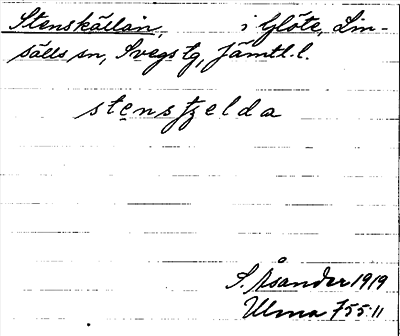 Stenskällan, i Glöte, Lin-
sälls sn, Svegs tg, Jämtl. l.
stensʃʒelda
S. Åsander 1919
Ulma 755:11